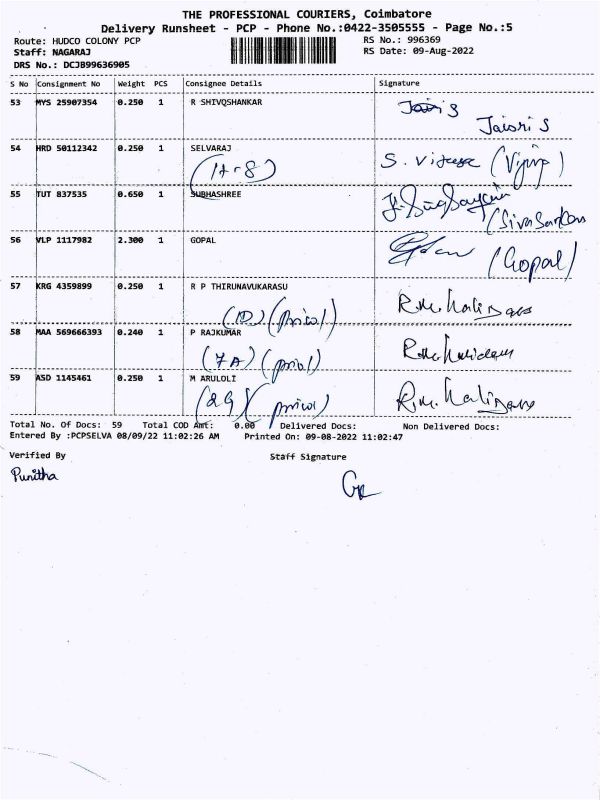 THE PROFESSIONAL COURIERS, Coimbatore
Delivery Runsheet - PCP - Phone No.:0422-3505555 - Page No.:5
Route: HUDCO COLONY PCP RS No.: 996369
Staff: NAGARAJ RS Date: 09-Aug-2022
DRS No.: DCJB99636905
S No Consignment No Weight PCS Consignee Details Signature
53 MYS 25907354 0.250 1 R SHIVQSHANKAR
54 HRD 50112342 0.250 1 SELVARAJ
55 TUT 837535 0.650 1 SUBHASHREE
56 VLP 1117982 2.300 1 GOPAL
(Gopal)
57 KRG 4359899 0.250 1 R P THIRUNAVUKARASU
58 MAA 569666393 0.240 1 P RAJKUMAR
(7A)
59 ASD 1145461 0.250 1 M ARULOLI
Total No. Of Docs: 59 Total COD Amt: 0.00 Delivered Docs: Non Delivered Docs:
Entered By :PCPSELVA 08/09/22 11:02:26 AM Printed On: 09-08-2022 11:02:47
Verified By Staff Signature
Punitha